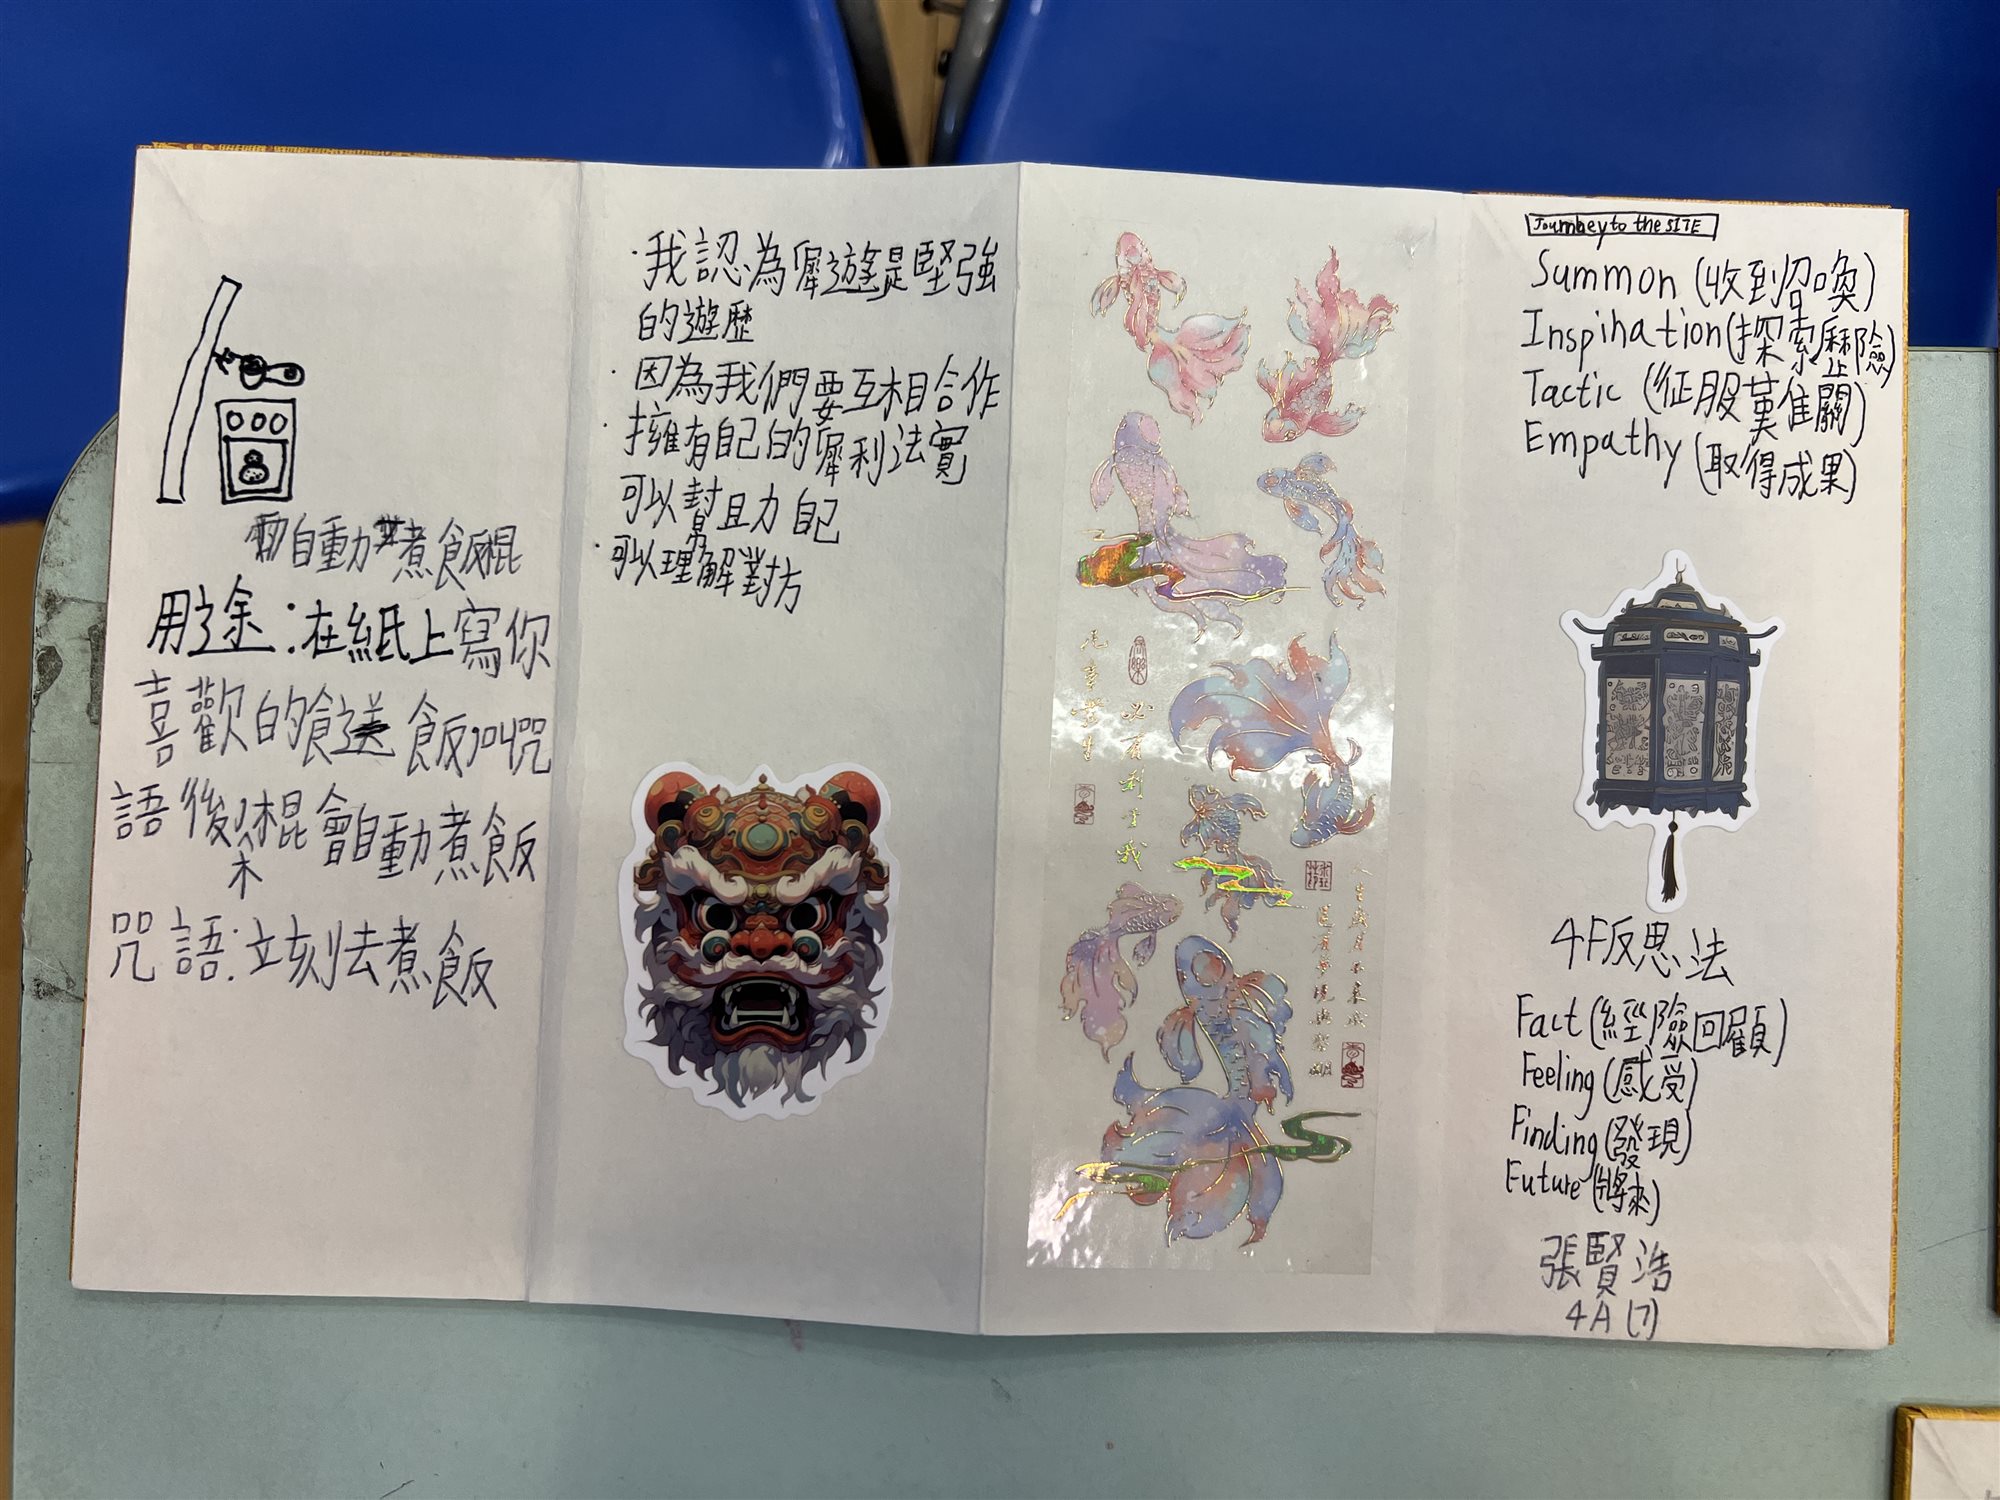 自動煮飯棍
用途：在紙上寫你
喜歡的食送飯叫咒
語後木棍會自動煮飯
咒語：立刻去煮飯
·我認為犀遊是堅強
的遊歷
·因為我們要互相合作
·擁有自己的犀利法寶
可以幫助自己
·可以理解對方
凡事發生
必有利于我
人生歲月不哀戚
還有夢境與黎明
Journey to the SITE
Summon (收到召喚)
Inspiration (探索歷險)
Tactic (征服莫隹關)
Empathy (取得成果)
4F版思法
Fact (經險回顧)
Feeling (感受)
Finding (發現)
Future (將來)
張賢浩
4A (7)